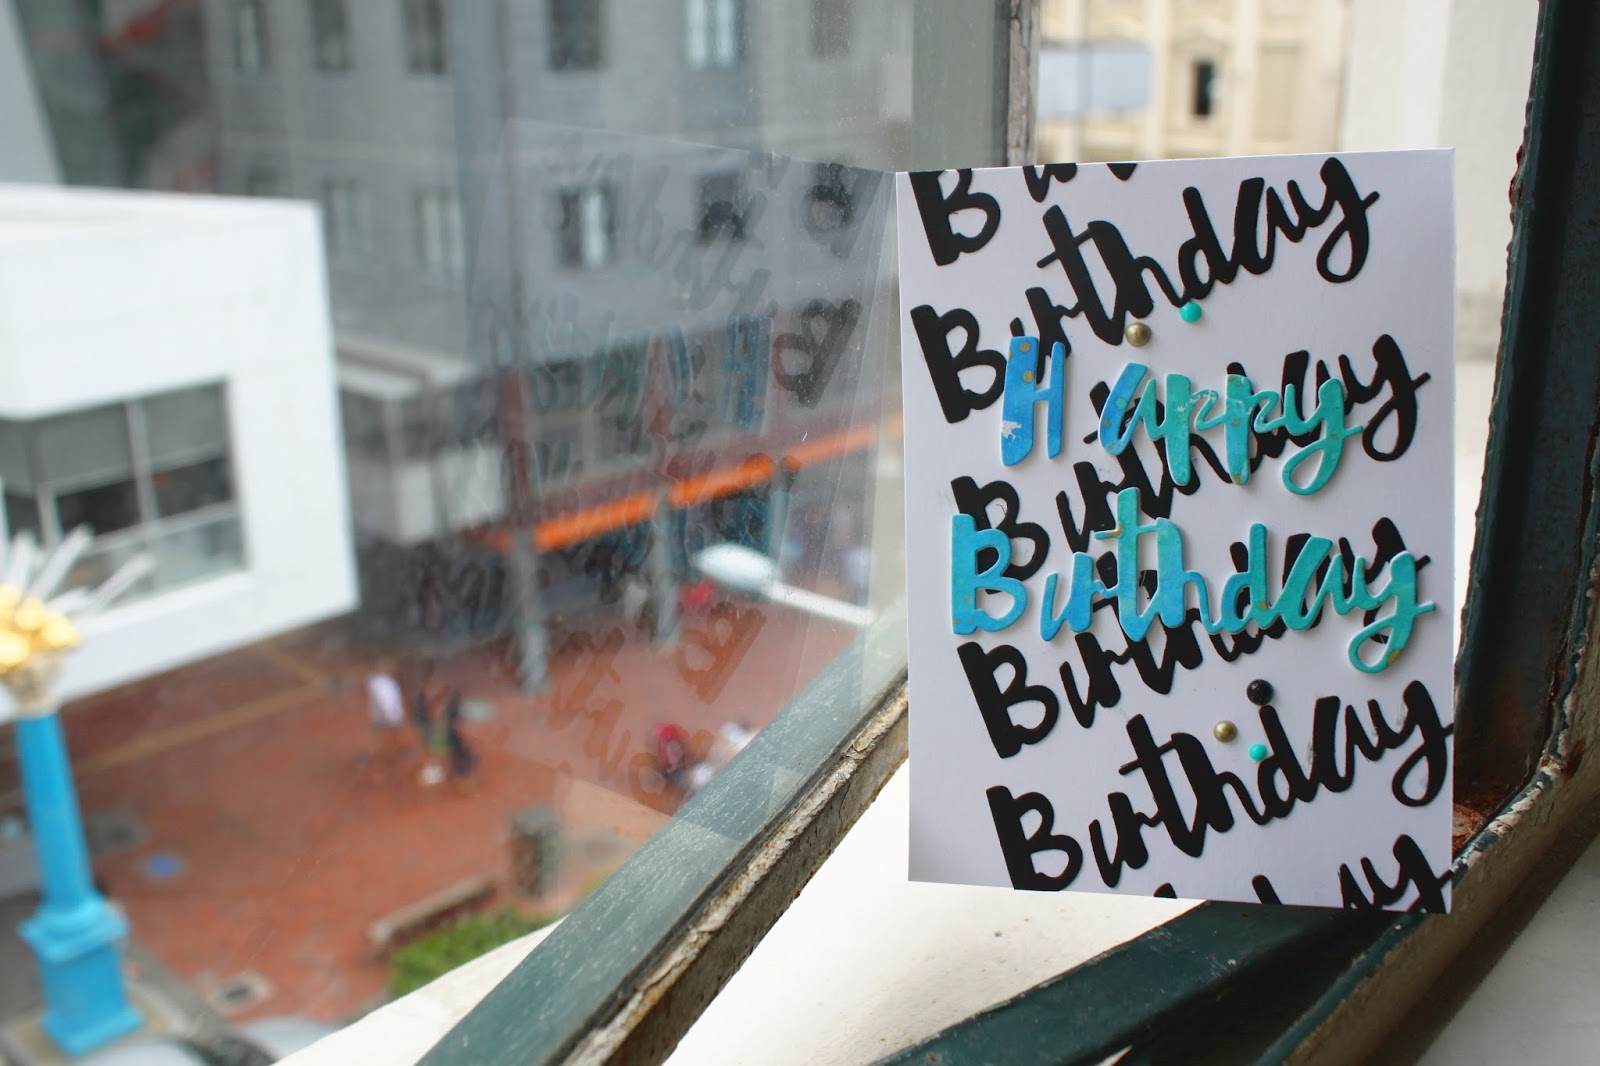 Bir
Birthday
Happy
Birthday
Birthday
Birthday
Birthday
day